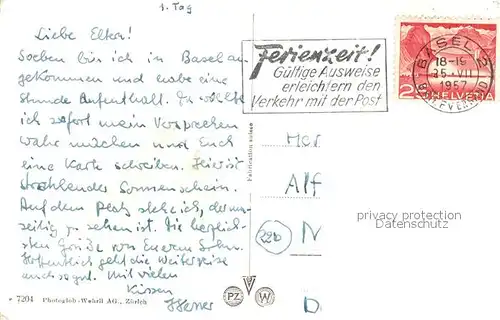 1. Tag
Liebe Eltern!
Soeben bin ich in Basel an-
gekommen und habe eine
Stunde Aufenthalt. Da wollte
ich sofort mein Versprechen
wahr machen und Euch
eine Karte schreiben. Hier ist
strahlender Sonnenschein.
Auf dem Platz stehe ich, der
zu sehen ist. Die herzlich-
sten Grüße von Eurem Sohn.
Hoffentlich geht die Weiterreise
auch so gut. Mit vielen
Küssen
Ferienzeit!
Gültige Ausweise
erleichtern den
Verkehr mit der Post
BASEL 2
18-19
25.VII
1957
BRIEFVERSAND
2 HELVETIA
Fabrication suisse
Her
Alf
22b N
D
privacy protection
Datenschutz
7204 Photoglob-Wehrli AG., Zürich
PZ W